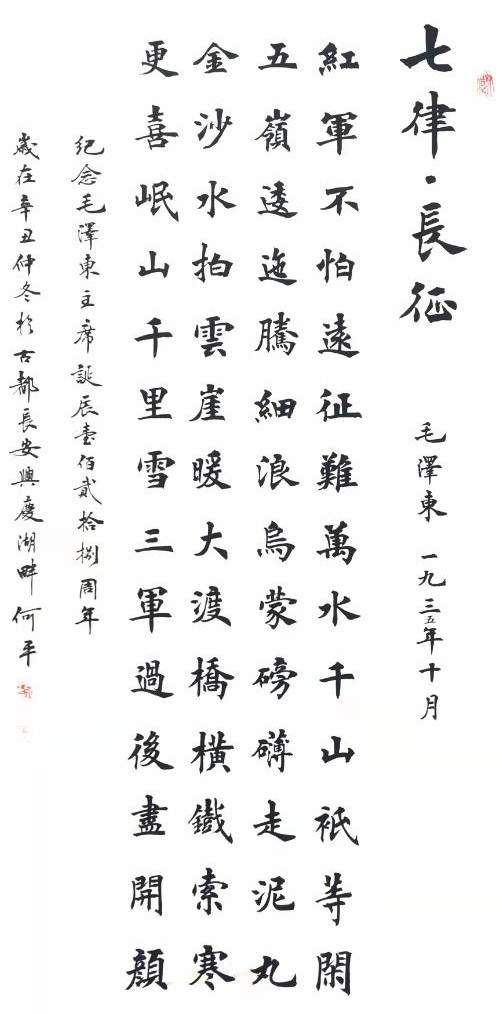 七律·長征
毛澤東 一九三五年十月
紅軍不怕遠征難萬水千山祇等閑
五嶺逶迤騰細浪烏蒙磅礴走泥丸
金沙水拍雲崖暖大渡橋橫鐵索寒
更喜岷山千里雪三軍過後盡開顏
紀念毛澤東主席誕辰壹佰貳拾捌周年
歲在辛丑仲冬於古都長安興慶湖畔何平